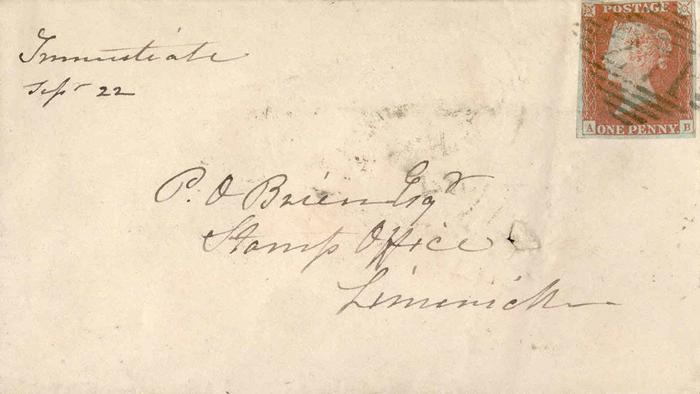 Immediate
Sept 22
POSTAGE
A ONE PENNY. B
P. O Brien Esqr
Stamp Office
Limerick